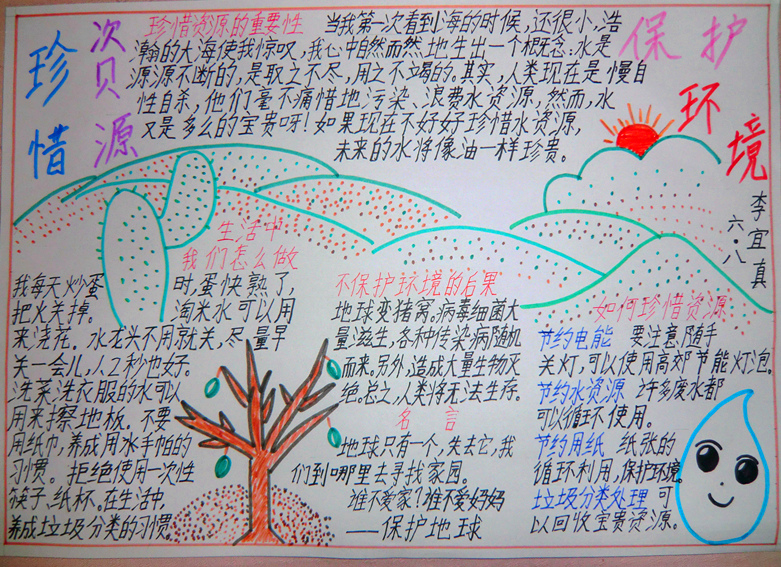 珍惜资源
保护环境
李宜真
六.八
珍惜资源的重要性
当我第一次看到海的时候,还很小,浩
瀚的大海使我惊叹,我心中自然而然地生出一个概念:水是
源源不断的,是取之不尽,用之不竭的。其实,人类现在是慢自
性自杀,他们毫不痛惜地污染、浪费水资源,然而,水
又是多么的宝贵呀!如果现在不好好珍惜水资源,
未来的水将像油一样珍贵。
生活中
我们怎么做
我每天炒蛋时,蛋快熟了,
把火关掉。淘米水可以用
来浇花。水龙头不用就关,尽量早
关一会儿,人2秒也好。
洗菜洗衣服的水可以
用来擦地板。不要
用纸巾,养成用水手帕的
习惯。拒绝使用一次性
筷子、纸杯。在生活中,
养成垃圾分类的习惯
不保护环境的后果
地球变猪窝。病毒细菌大
量滋生,各种传染病随机
而来。另外,造成大量生物灭
绝。总之,人类将无法生存。
名言
地球只有一个,失去它,我
们到哪里去寻找家园。
谁不爱家?谁不爱妈妈
——保护地球
如何珍惜资源
节约电能 要注意随手
关灯,可以使用高郊节能灯泡。
节约水资源 许多废水都
可以循环使用。
节约用纸 纸张的
循环利用,保护环境。
垃圾分类处理 可
以回收宝贵资源。